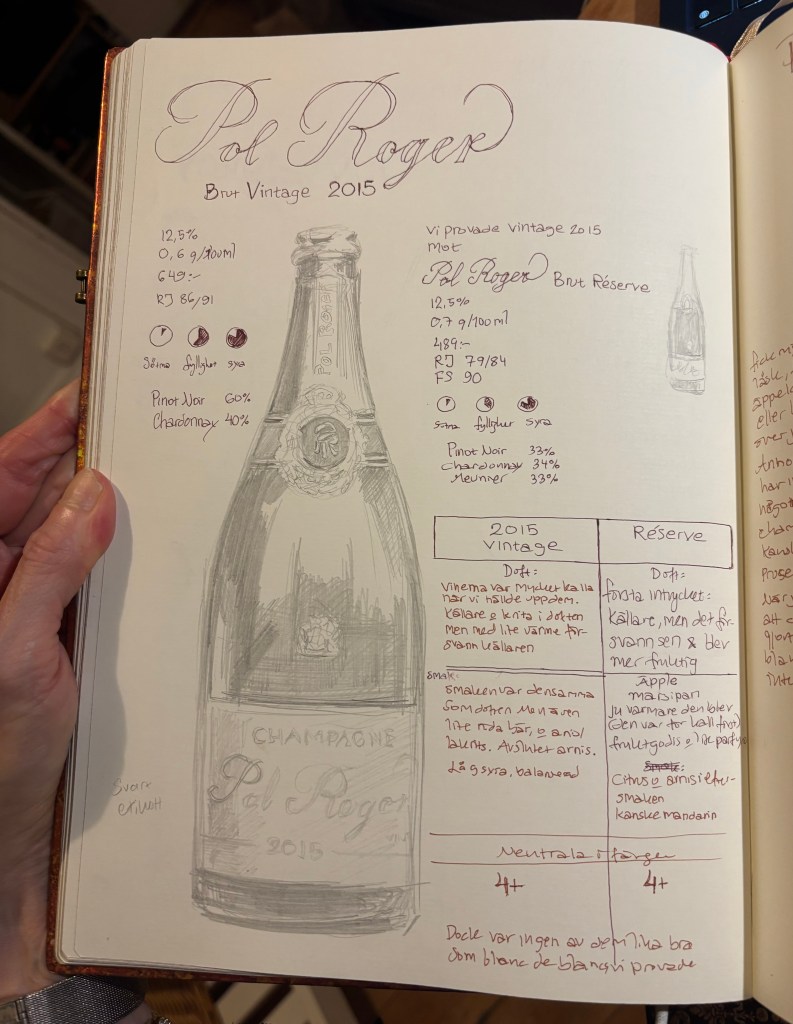 Pol Roger
Brut Vintage 2015
12,5%
0,6 g/100ml
649:-
RJ 86/91
Sötma fyllighet syra
Pinot Noir 60%
Chardonnay 40%
POL ROGER
CHAMPAGNE
Pol Roger
2015
Svart
etikett
Vi provade vintage 2015
mot
Pol Roger Brut Réserve
12,5%
0,7 g/100ml
489:-
RJ 79/84
FS 90
Sötma fyllighet syra
Pinot Noir 33%
Chardonnay 34%
Meunier 33%
2015
Vintage
Doft:
Vinerna var mycket kalla
när vi hällde upp dem.
Källare & krita i doften
men med lite värme för-
svann källaren
Smak:
smaken var densamma
som doften men även
lite röda bär, o anis/
lakrits. Avslutet arnis.
Låg syra, balanserad
Réserve
Doft:
första intrycket:
källare, men det för-
svann sen & blev
mer fruktig
Äpple
marsipan
ju varmare den blev
(den var för kall först)
fruktgodis o
Smak:
Citrus o arnis i efter-
smaken
kanske mandarin
Neutrala i färgen
4+ 4+
Dock var ingen av dem lika bra
som blanc de blancs vi provade
fick
läsk,
äppel
eller
sverj
Anno
har
något
cham
kansk
Prose
När
att
gjor
bla
inte